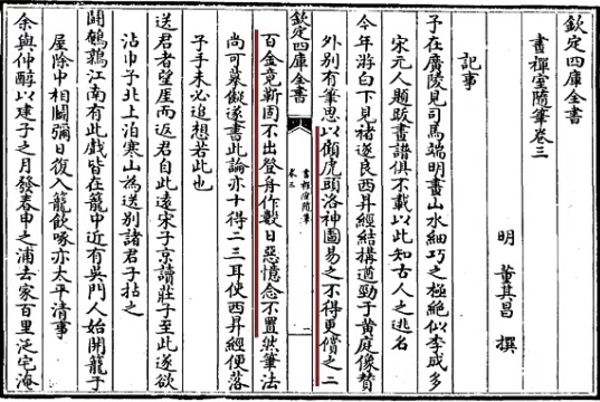 欽定四庫全書
畫禪室隨筆卷三
明 董其昌 撰
記事
予在廣陵見司馬端明畫山水細巧之極絕似李成多
宋元人題跋畫譜俱不載以此知古人之逃名
今年游白下見褚遂良西昇經結構遒勁于黃庭像贊
外別有筆思以顧虎頭洛神圖易之不得更償之二
欽定四庫全書
畫禪室隨筆
卷三
二
百金竟靳固不出登舟作數日惡憶念不置然筆法
尚可摹儗遂書此論亦十得二三耳使西昇經便落
予手未必追想若此也
送君者望厓而返君自此遠宋子京讀莊子至此遂欲
沾巾予北上泊寒山為送別諸君子拈之
鬪鵪鶉江南有此戲皆在籠中近有吳門人始開籠于
屋除中相鬬彌日復入籠飲啄亦太平清事
余與仲醇以建子之月發舂申之浦去家百里泛宅淹